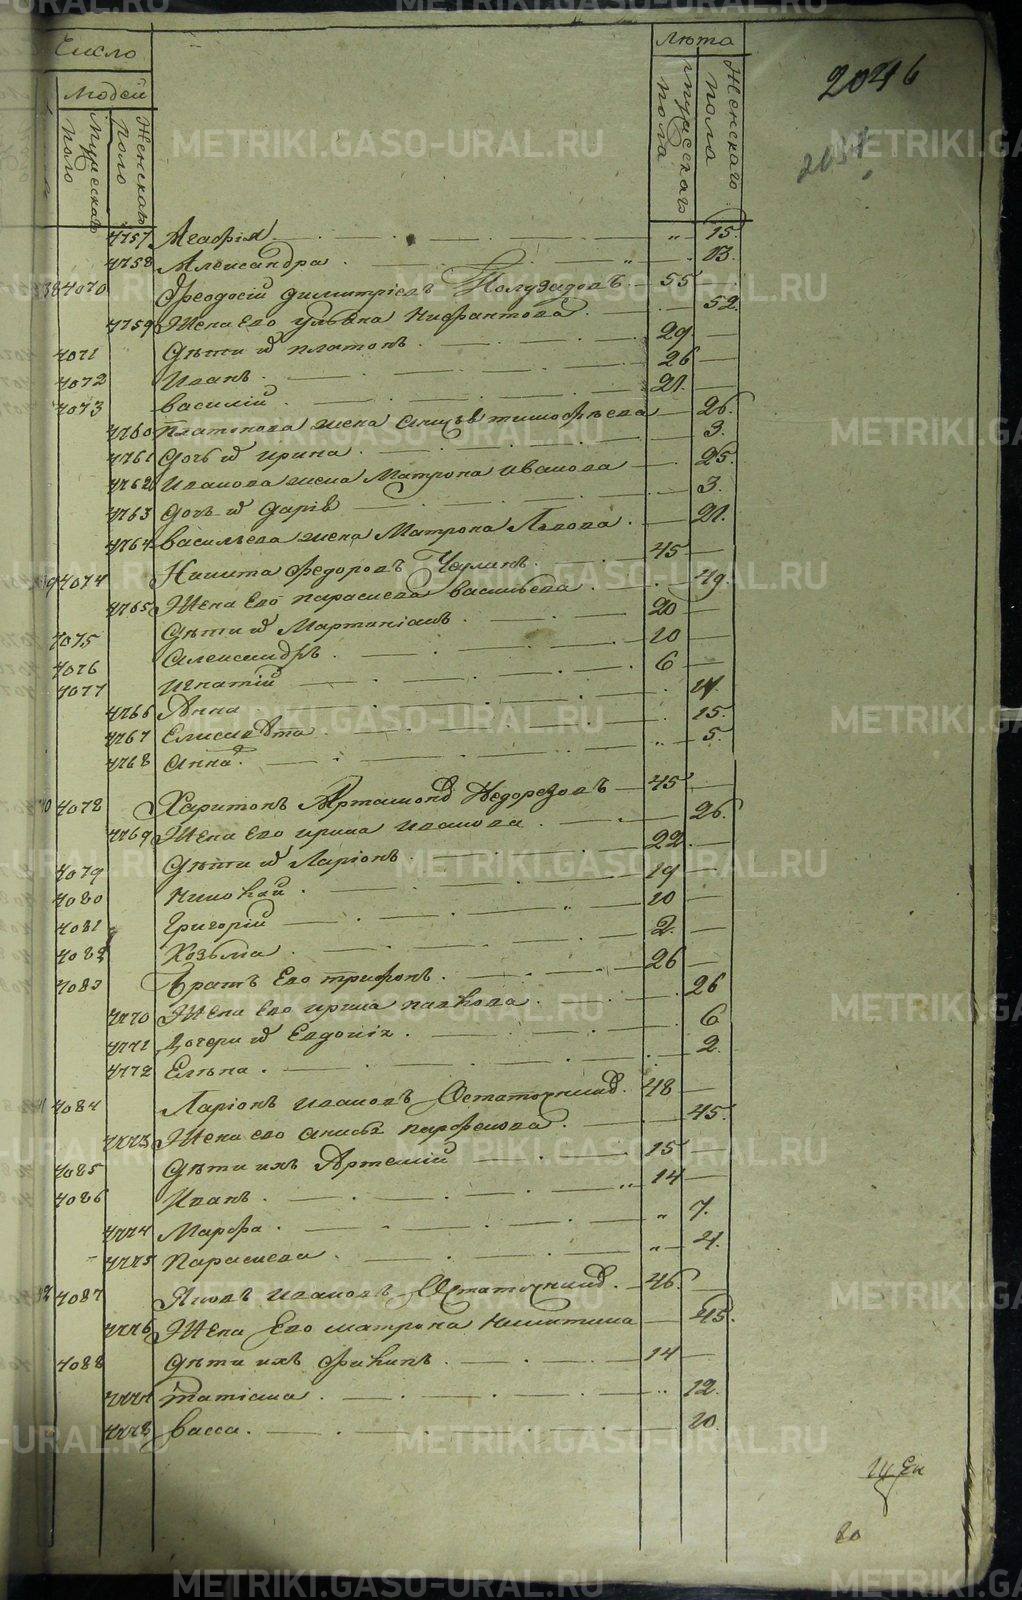 Число
Людей
Мужеска поло
Женска поло
Лѣта
Мужескаго пола
Женскаго пола
2046
4757 Агафія 15.
4758 Александра 13.
4070 Ѳеодосій Димитріевъ 55
4759 Жена Его Ульяна 52.
4071 Дѣти и Платонъ 29
4072 Иванъ 26
4073 Василій 21.
4760 Платонова жена Тимофѣева 26.
4761 Дочь и Ирина 3.
4762 Иванова жена Матрона Иванова 25.
4763 Дочь и Дарія 3.
4764 Васильева жена Матрона Львова 21.
4074 Никита Федоровъ 45
4765 Жена Его Параскева Васильева 49.
4075 Дѣти и Мартиніанъ 20
4076 Александръ 10
4077 Игнатій 6
4766 Анна
4767 Елисавѣта 15.
4768 Анна 5.
4078 Харитонъ 45
4769 Жена Его Ирина Иванова 26.
4079 Дѣти и Ларіонъ 22
4080 Николай 19
4081 Григорій 10
4082 Козьма 2.
4083 Братъ Его Трифонъ 26
4770 Жена Его Ирина Павлова 26
4771 Дочери и Евдокія 6
4772 Елѣна 2.
4084 Ларіонъ Ивановъ 48
4773 Жена его Анисья Парфенова 45.
4085 Дѣти ихъ Артемій 15
4086 Иванъ 14
4774 Марфа 7.
4775 Параскева 4.
4087 Яковъ Ивановъ 46
4776 Жена Его Матрона Никитина 45.
4088 Дѣти ихъ Филипъ 14
4777 Татіана 12.
4778 Васса 10.
80
METRIKI.GASO-URAL.RU